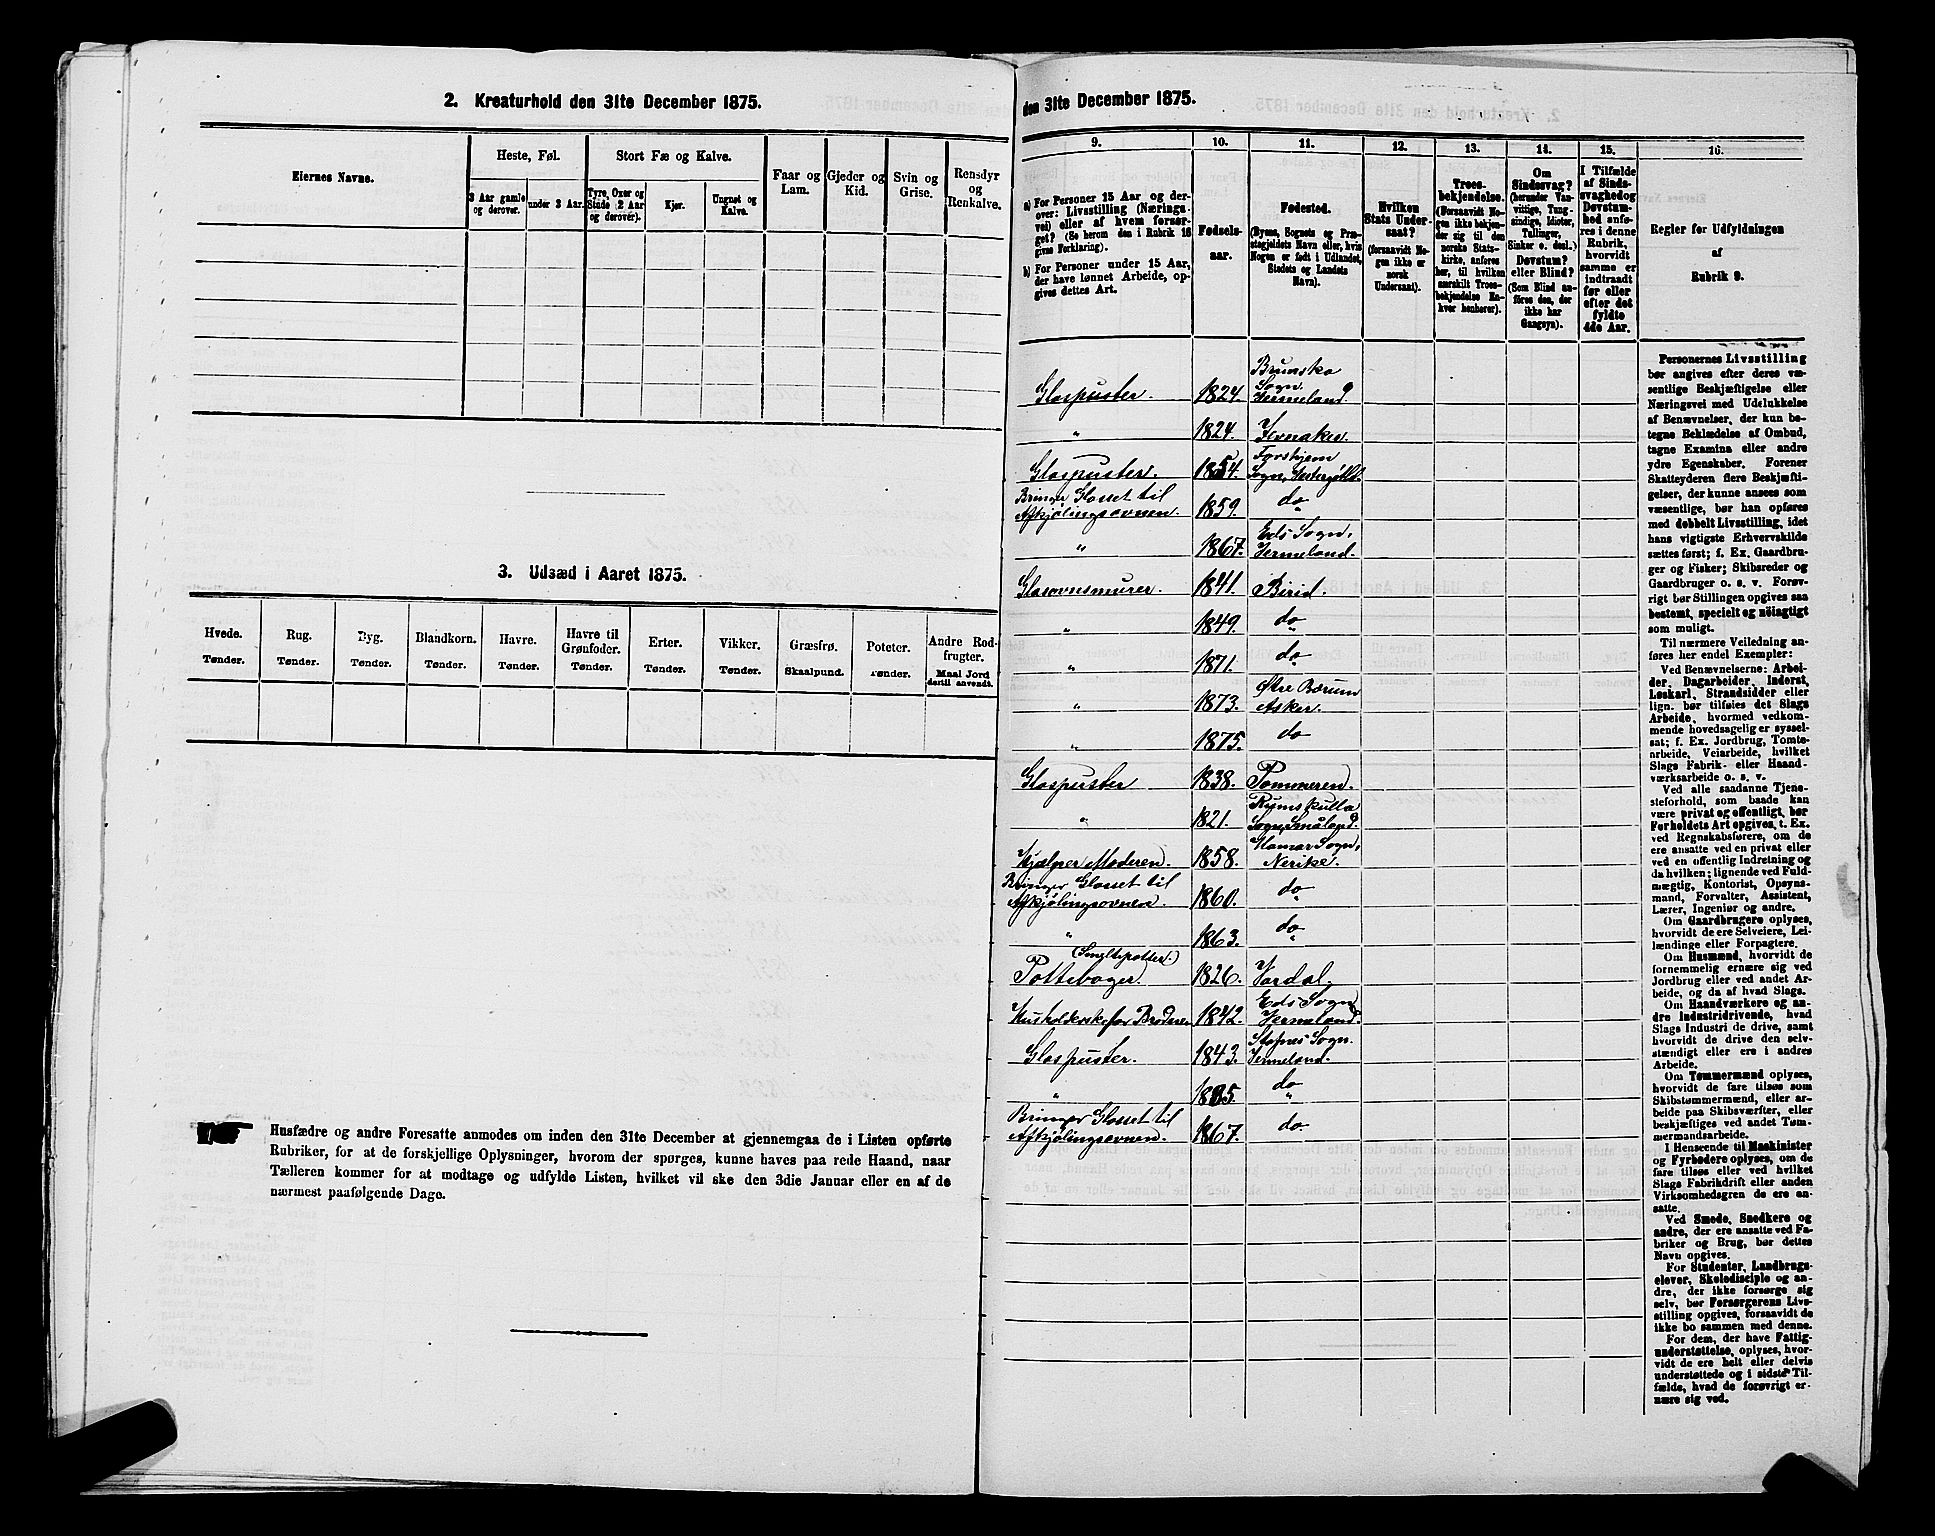 2. Kreaturhold den 31te December 1875.
Eiernes Navne.
Heste, Føl.
3 Aar gamle og derover.
under 3 Aar.
Stort Fæ og Kalve.
Tyre, Oxer og Stude (2 Aar og derover).
Kjør.
Ungnøt og Kalve.
Faar og Lam.
Gjeder og Kid.
Svin og Grise.
Rensdyr og Renkalve.
3. Udsæd i Aaret 1875.
Hvede. Rug. Byg. Blandkorn. Havre. Havre til Grønfoder. Erter. Vikker. Græsfrø. Poteter. Andre Rodfrugter.
Tønder. Tønder. Tønder. Tønder. Tønder. Tønder. Tønder. Tønder. Skaalpund. Tønder. Maal Jord dertil anvendt.
Husfædre og andre Foresatte anmodes om inden den 31te December at gjennemgaa de i Listen opførte
Rubriker, for at de forskjellige Oplysninger, hvorom der spørges, kunne haves paa rede Haand, naar
Tælleren kommer for at modtage og udfylde Listen, hvilket vil ske den 3die Januar eller en af de
nærmest paafølgende Dage.
den 31te December 1875.
9. 10. 11. 12. 13. 14. 15. 16.
a) For Personer 15 Aar og derover: Livsstilling (Næringsvei) eller af hvem forsørget? (Se herom den i Rubrik 16 givne Forklaring).
b) For Personer under 15 Aar, der have lønnet Arbeide, opgives dettes Art.
Fødselsaar.
Fødested.
(Byens, Sognets og Præstegjeldets Navn eller, hvis Nogen er født i Udlandet, Stedets og Landets Navn).
Hvilken Stats Undersaat?
(forsaavidt Nogen ikke er norsk Undersaat).
Troesbekjendelse.
(Forsaavidt Nogen ikke bekjender sig til den norske Statskirke, anføres her, til hvilken særskilt Troesbekjendelse Enhver henhører).
Om Sindssvag?
(herunder Vanvittige, Tungsindige, Idioter, Tullinger, Sinker o. desl.)
Døvstum?
eller Blind?
(Som Blind anføres den, der ikke har Gangsyn).
I Tilfælde af Sindssvaghed og Døvstumhed anføres i denne Rubrik, hvorvidt samme er indtraadt før eller efter det fyldte 4de Aar.
Regler for Udfyldningen
af
Rubrik 9.
Glaspuster. 1824. Brunsko Sogn Vermeland.
" 1824. Jevnaker.
Glaspuster. 1854. Forshjem Sogn, Vestergøtld.
Bringer Glasset til Afkjølingsovnen. 1859. do
" 1867. Eds Sogn, Vermeland.
Glasovnsmurer. 1841. Birid.
" 1849. do
" 1871. do
" 1873. Østre Bærum Asker.
" 1875. do
Glaspuster 1838. Pommeren.
" 1821. Rumskulla Sogn, Småland.
Hjælper Moderen. 1858. Hamar Sogn, Nerike.
Bringer Glasset til Afkjølingsovnen. 1860. do
" 1863. do
(Smeltepotter.)
Pottebager. 1826. Vardal.
Husholderske for Broderen 1842. Eds Sogn Vermeland.
Glaspuster. 1843. Stafnes Sogn. Vermeland.
" do
Bringer Glasset til Afkjølingsovnen. 1867. do
Personernes Livsstilling
bør angives efter deres væsentlige
Beskjæftigelse eller
Næringsvei med Udelukkelse
af Benævnelser, der kun betegne
Beklædelse af Ombud,
tagne Examina eller andre
ydre Egenskaber. Forener
Skatteyderen flere Beskjæftigelser,
der kunne ansees som
væsentlige, bør han opføres
med dobbelt Livsstilling, idet
hans vigtigste Erhvervskilde
sættes først; f. Ex. Gaardbruger
og Fisker; Skibsreder og
Gaardbruger o. s. v. Forøvrigt
bør Stillingen opgives saa
bestemt, specielt og nøiagtigt
som muligt.
Til nærmere Veiledning anføres
her endel Exempler:
Ved Benævnelserne: Arbeider,
Dagarbeider, Inderst,
Løskarl, Strandsidder eller
lign. bør tilføies det Slags
Arbeide, hvormed vedkommende
hovedsagelig er sysselsat;
f. Ex. Jordbrug, Tomtearbeide,
Veiarbeide, hvilket
Slags Fabrik- eller Haandværksarbeide
o. s. v.
Ved alle saadanne Tjenesteforhold,
som baade kan
være privat og offentligt, bør
Forholdets Art opgives, t. Ex.
ved Regnskabsførere, om de
ere ansatte ved en privat eller
ved en offentlig Indretning og
da hvilken; lignende ved Fuldmægtig,
Kontorist, Opsynsmand,
Forvalter, Assistent,
Lærer, Ingeniør og andre.
Om Gaardbrugere oplyses,
hvorvidt de ere Selveiere, Leilændinge
eller Forpagtere.
Om Husmænd, hvorvidt de
fornemmelig ernære sig ved
Jordbrug eller ved andet Arbeide,
og da af hvad Slags.
Om Haandværkere og andre
Industridrivende, hvad
Slags Industri de drive, samt
hvorvidt de drive den selvstændigt
eller ere i andres
Arbeide.
Om Tømmermænd oplyses,
hvorvidt de fare tilsøs som
Skibstømmermænd, eller arbeide
paa Skibsværfter, eller
beskjæftiges ved andet Tømmermandsarbeide.
I Henseende til Maskinister
og Fyrbødere oplyses, om de
fare tilsøs eller ved hvilket
Slags Fabrikdrift eller anden
Virksomhedsgren de ere ansatte.
Ved Smede, Snedkere og
andre, der ere ansatte ved Fabriker
og Brug, bør dettes
Navn opgives.
For Studenter, Landbrugselever,
Skoledisciple og andre,
der ikke forsørge sig
selv, bør Forsørgerens Livsstilling
opgives, forsaavidt de
ikke bo sammen med denne.
For dem, der have Fattigunderstøttelse,
oplyses, hvorvidt
de ere helt eller delvis
understøttede og i sidste Tilfælde,
hvad de forøvrigt ernære
sig ved.